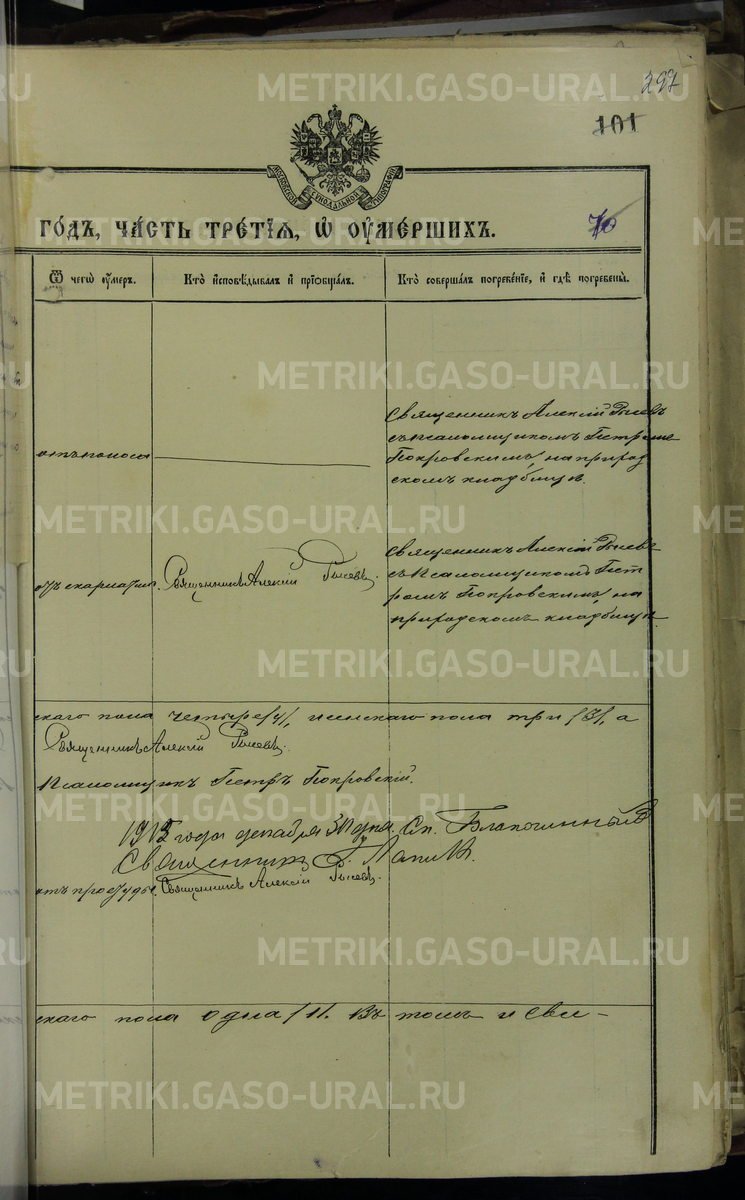 297
101
МОСКОВСКОЙ СѴНОДАЛЬНОЙ ТИПОГРАФІИ
ГОДЪ, ЧАСТЬ ТРЕТІЯ, Ѿ ОУМЕРШИХЪ.
70
Ѿ чегѡ оумеръ.
Кто исповѣдывалъ и пріобщалъ.
Кто совершалъ погребеніе, и гдѣ погребены.
отъ поноса
Священникъ Алексій
съ псаломщикомъ Петромъ
Покровскимъ, на приход
скомъ кладбищѣ.
отъ скарлатины.
Священникъ Алексій
Священникъ Алексій
съ псаломщикомъ Пет
ромъ Покровскимъ, на
приходскомъ кладбищѣ.
скаго пола четыре /4/, женскаго пола три /3/, а
Священникъ Алексій
Псаломщикъ Петръ Покровскій.
года декабря дня. Благочинный
Священникъ
отъ простуды.
Священникъ Алексій
скаго пола одна /1/. Въ томъ и сви-
METRIKI.GASO-URAL.RU